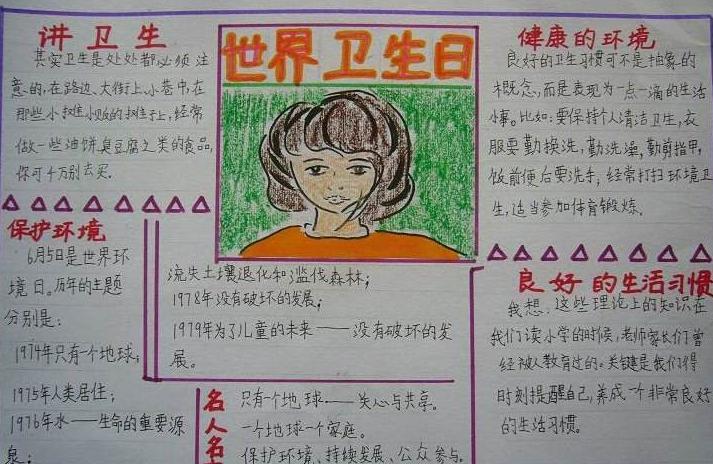 讲卫生
其实卫生是处处都必须注
意的,在路边、大街上,小巷中,在
那些小摊小贩的摊子上,经常
做一些油饼,臭豆腐之类的食品,
你可千万别去买.
世界卫生日
健康的环境
良好的卫生习惯可不是抽象的
概念,而是表现为一点一滴的生活
小事。比如:要保持个人清洁卫生,衣
服要勤换洗,勤洗澡,勤剪指甲,
饭前便后要洗手,经常打扫环境卫
生,适当参加体育锻炼.
保护环境
6月5日是世界环
境日。历年的主题
分别是:
1974年只有一个地球;
1975年人类居住;
1976年水——生命的重要源
泉;
流失土壤退化和滥伐森林;
1978年没有破坏的发展;
1979年为了儿童的未来——没有破坏的发
展。
名人名
只有一个地球——关心与共享。
一个地球一个家庭。
保护环境、持续发展、公众参与。
良好的生活习惯
我想,这些理论上的知识在
我们读小学的时候,老师家长们曾
经被人教育过的。关键是我们得
时刻提醒自己,养成一个非常良好
的生活习惯。